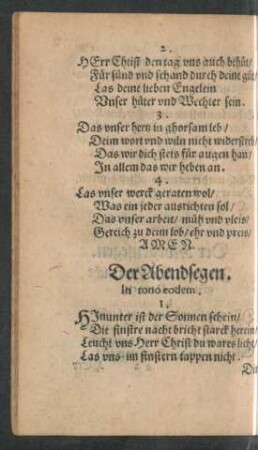 2.
HErr Christ den tag vns auch behüt/
Für sünd vnd schand durch deine güt/
Las deine lieben Engelein
Vnser hüter vnd Wechter sein.
3.
Das vnser hertz in ghorsam leb/
Deim wort vnd willn nicht widerstreb/
Das wir dich stets für augen han/
In allem das wir heben an.
4.
Las vnser werck geraten wol/
Was ein jeder ausrichten sol/
Das vnser arbeit/ müh vnd vleis/
Gereich zu deim lob/ ehr vnd preis/
AMEN.
Der Abendsegen.
In tono eodem.
1.
HInunter ist der Sonnen schein/
Die finstre nacht bricht starck herein/
Leucht vns Herr Christ du wares licht/
Las vns im finstern tappen nicht.